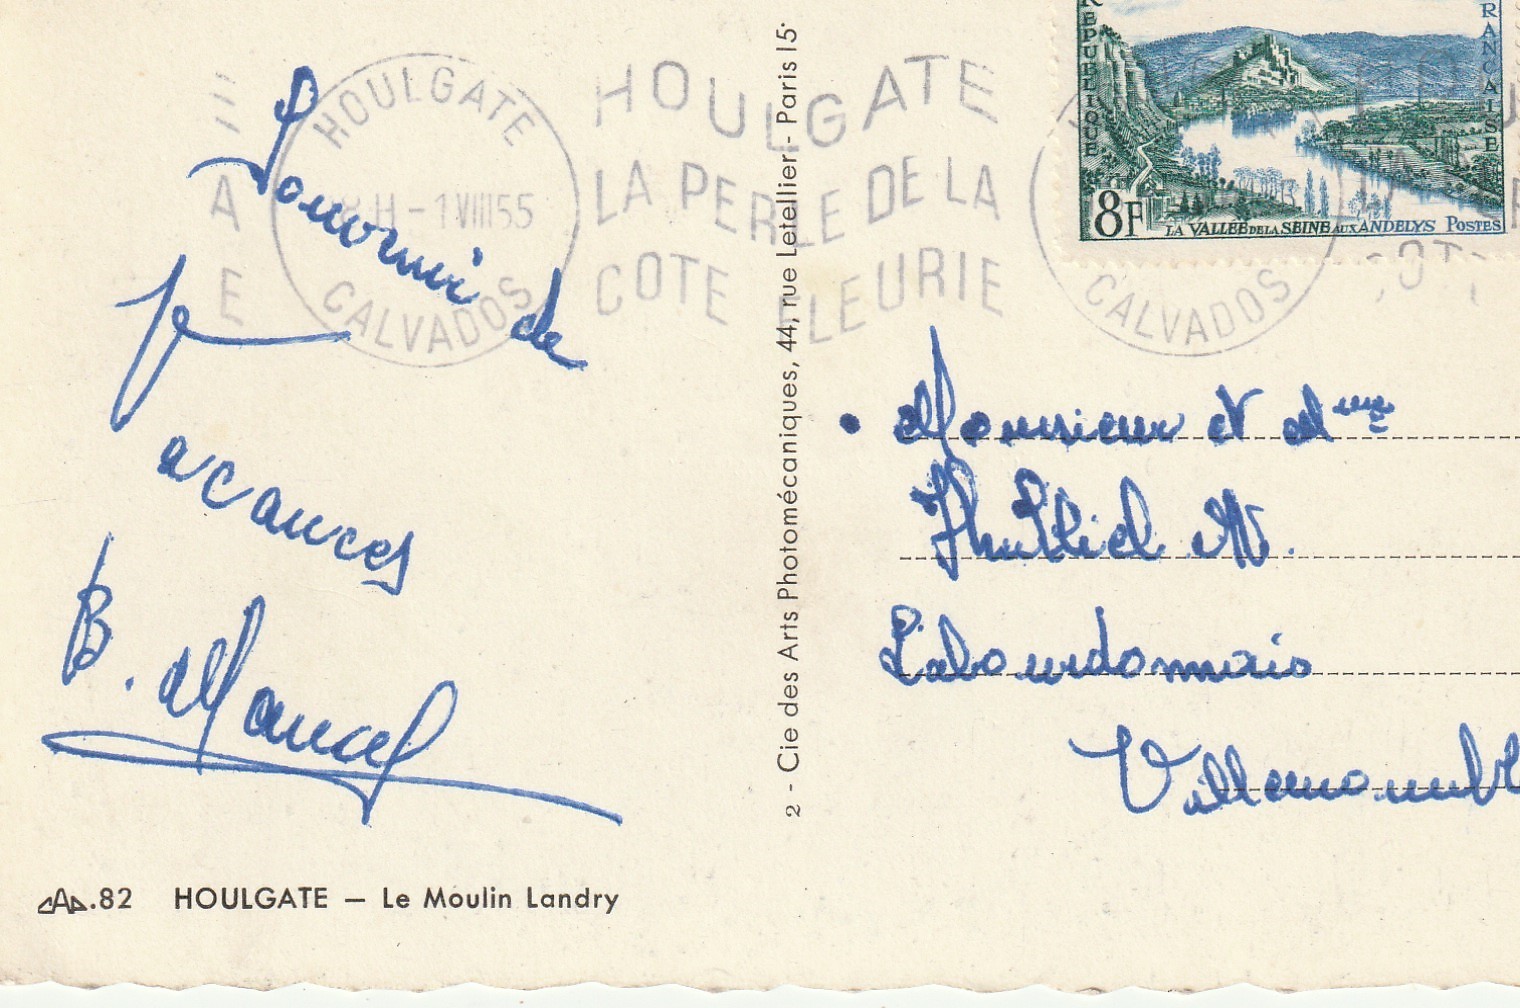 Souvenir de
Vacances
B. Mancel
CAP.82 HOULGATE — Le Moulin Landry
2 - Cie des Arts Photomécaniques, 44, rue Letellier - Paris 15e
HOULGATE
18 H - 1 VIII 55
CALVADOS
HOULGATE
LA PERLE DE LA
COTE FLEURIE
CALVADOS
RÉPUBLIQUE
FRANÇAISE
8F
LA VALLÉE DE LA SEINE AUX ANDELYS POSTES
Monsieur et Mme
Labourdonnais
Villemomble